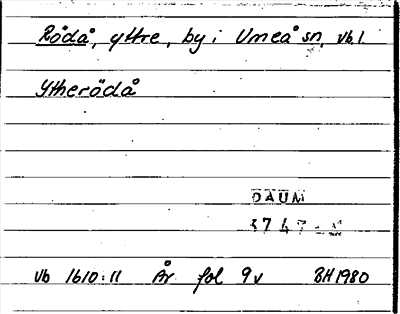 Rödå, yttre, by i Umeå sn, vb l.
Ytherödå
DAUM
3747
vb 1610:11 År fol 9v BH 1980